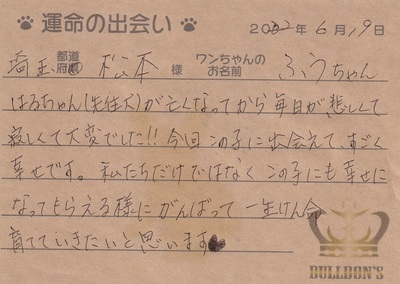 運命の出会い 2022年6月19日
埼玉 都道府県 松本 様 ワンちゃんのお名前 ふうちゃん
はるちゃん(先住犬)が亡くなってから毎日が悲しくて
寂しくて大変でした!!今回この子に出会えて、すごく
幸せです。私たちだけではなくこの子にも幸せに
なってもらえる様にがんばって一生けん命
育てていきたいと思います
BULLDON'S